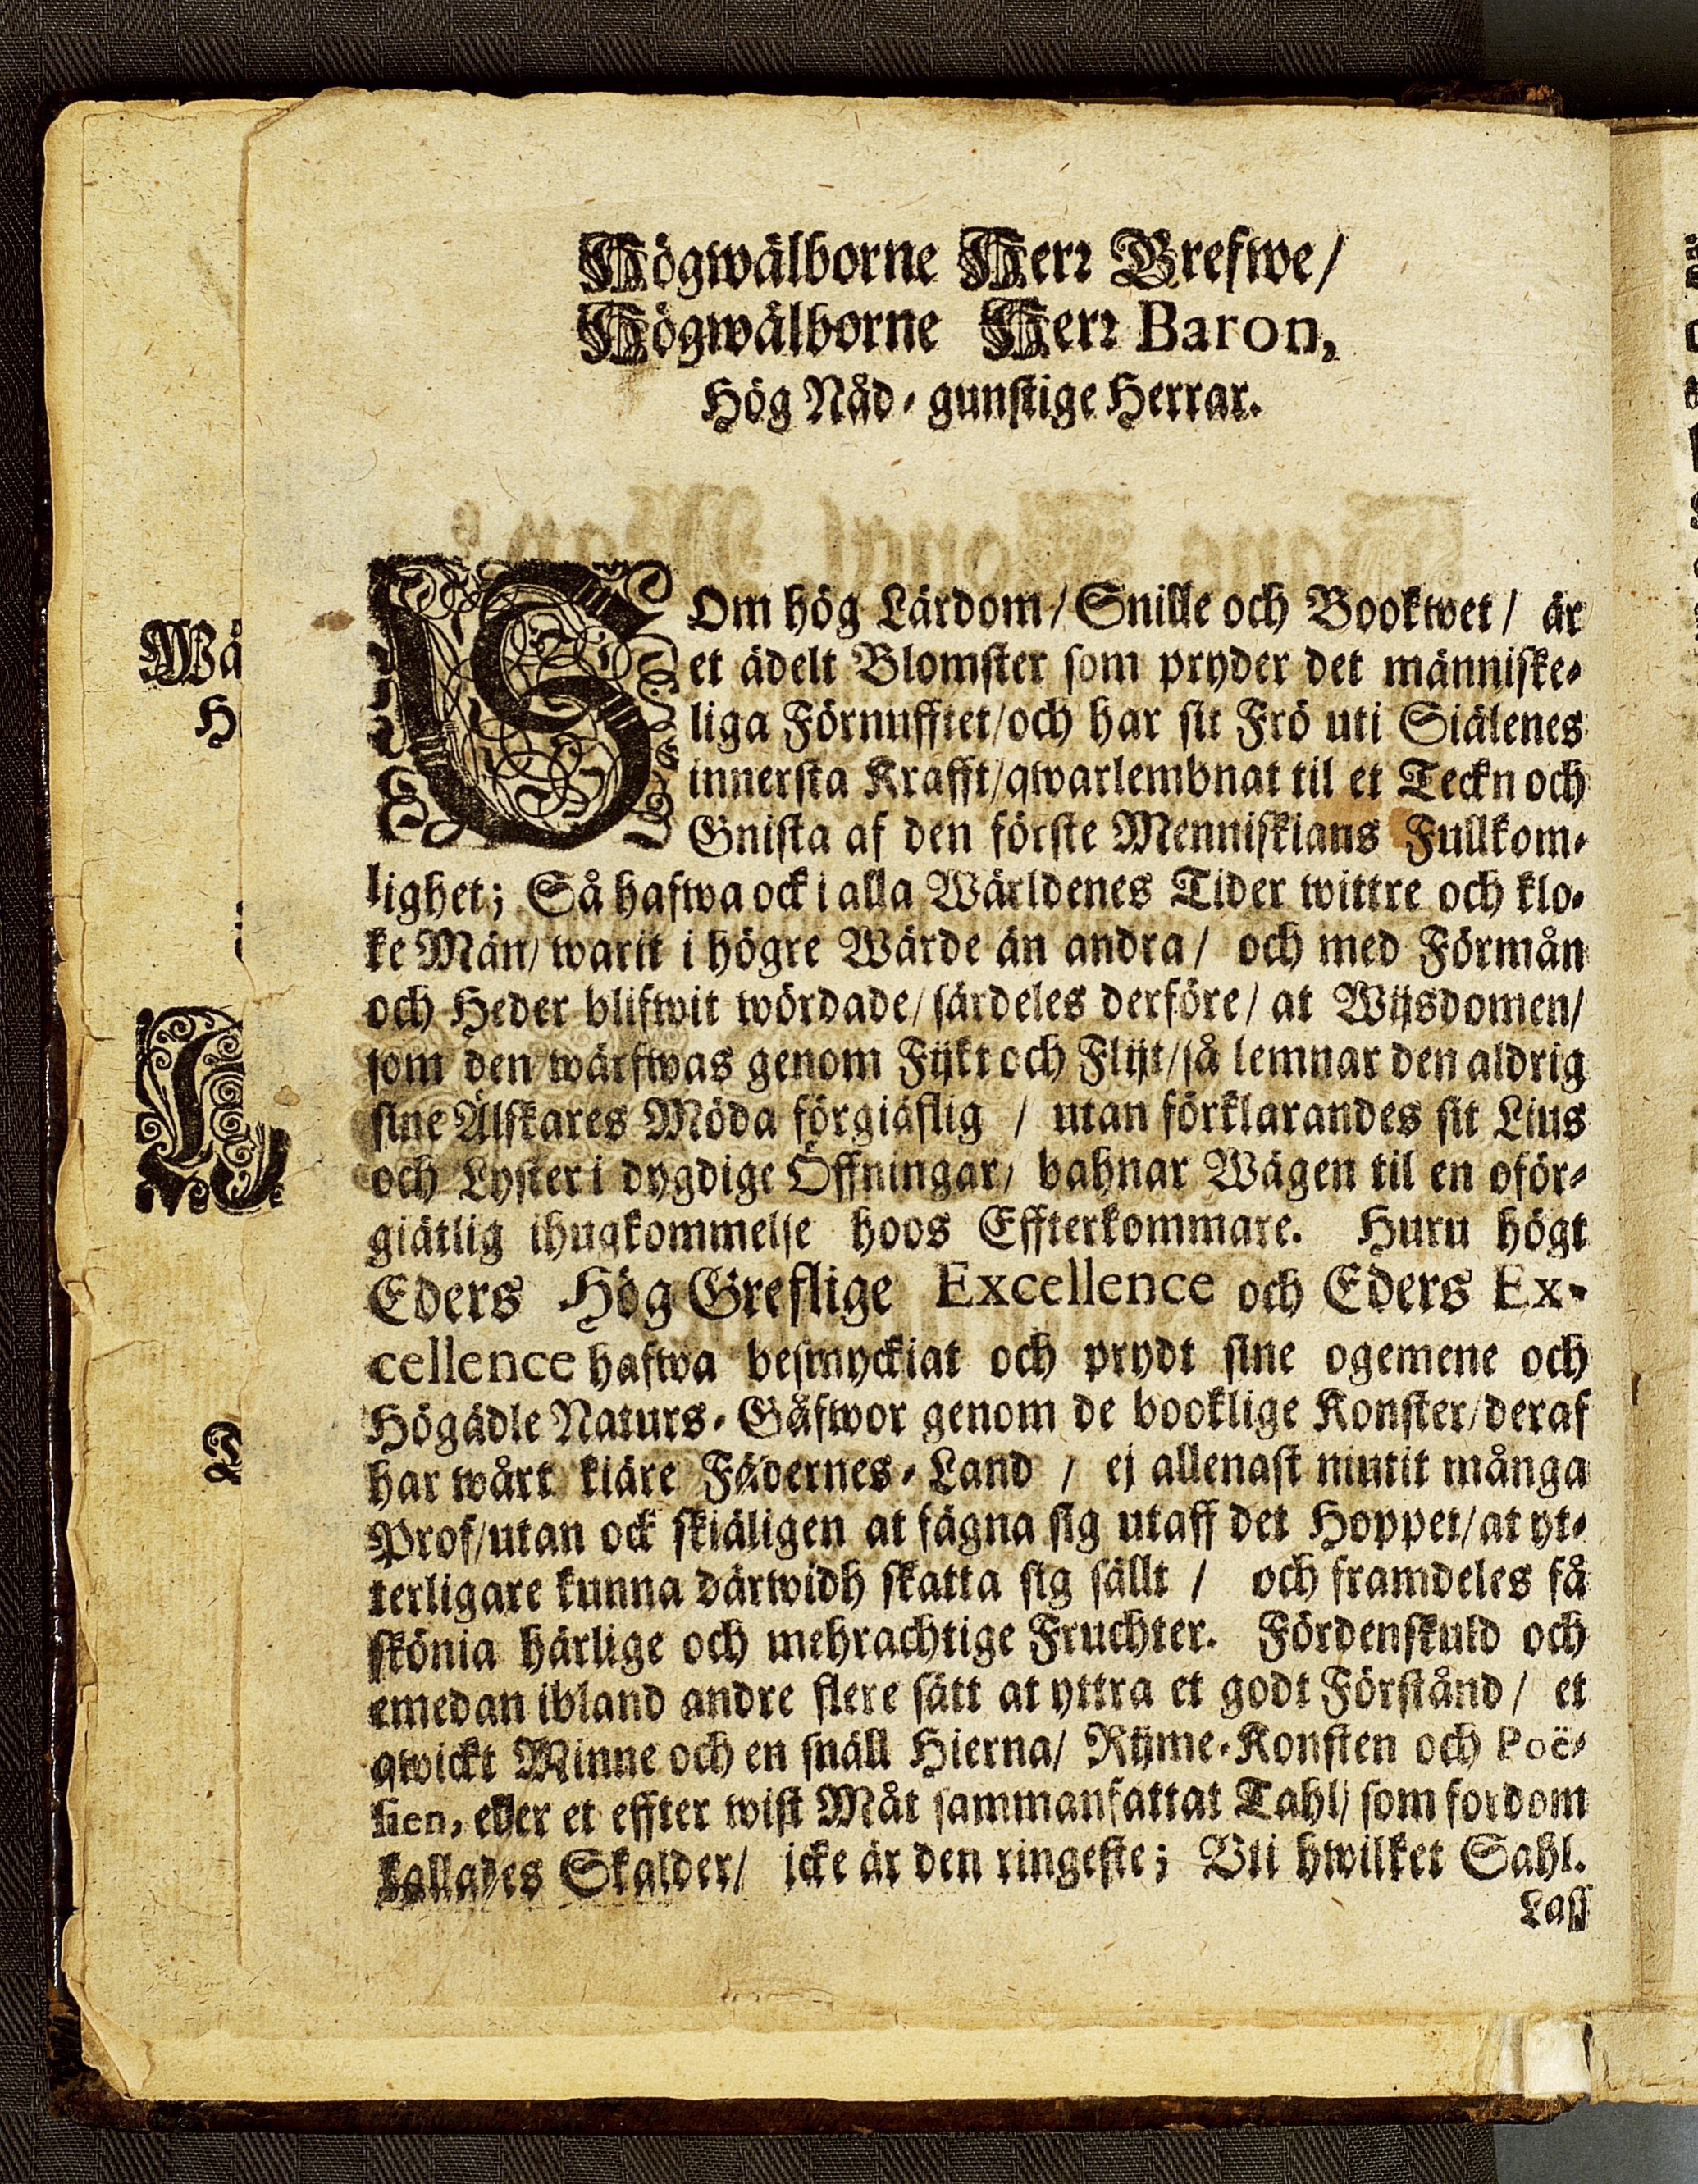 Högwälborne Herr Grefwe/
Högwälborne Herr Baron,
Hög Nåd-gunstige Herrar.
SOm hög Lärdom/ Snille och Bookwet/ är
et ädelt Blomster som pryder det människe-
liga Förnufftet/och har sit Frö uti Siälenes
innersta Krafft/qwarlembnat til et Teckn och
Gnista af den förste Menniskians Fullkom-
lighet; Så hafwa ock i alla Wärldenes Tider wittre och klo-
ke Män/ warit i högre Wärde än andra/ och med Förmån
och Heder blifwit wördade/ särdeles derföre/ at Wijsdomen/
som den wärfwas genom Fijkt och Flijt/så lemnar den aldrig
sine Älskares Möda förgiäflig / utan förklarandes sit Lius
och Lyster i dygdige Öffningar/ bahnar Wägen til en oför-
giätlig ihugkommelse hoos Effterkommare. Huru högt
Eders Hög Greflige Excellence och Eders Ex-
cellence hafwa besmyckiat och prydt sine ogemene och
Högädle Naturs-Gåfwor genom de booklige Konster/deraf
har wårt kiäre Fädernes-Land / ej allenast niutit många
Prof/utan ock skiäligen at fägna sig utaff det Hoppet/at yt-
terligare kunna därwidh skatta sig sällt / och framdeles få
skönia härlige och mehrachtige Fruchter. Fördenskuld och
emedan ibland andre flere sätt at yttra et godt Förstånd/ et
qwickt Minne och en snäll Hierna/ Rijme-Konsten och Poë-
sien, eller et effter wist Måt sammanfattat Tahl/ som fordom
kallades Skalder/ icke är den ringeste; Uti hwilket Sahl.
Lass
Wä
H
L